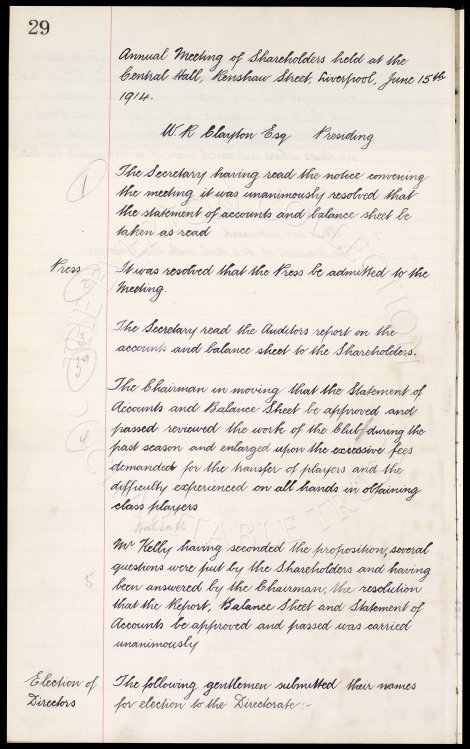 29
Annual Meeting of Shareholders held at the
Central Hall, Renshaw Street, Liverpool, June 15th
1914.
W R Clayton Esq Presiding
1
The Secretary having read the notice convening
the meeting it was unanimously resolved that
the statement of accounts and balance sheet be
taken as read
Press
It was resolved that the Press be admitted to the
Meeting.
The Secretary read the Auditors report on the
accounts and balance sheet to the Shareholders.
The Chairman in moving that the Statement of
Accounts and Balance Sheet be approved and
passed reviewed the work of the Club during the
past season and enlarged upon the excessive fees
demanded for the transfer of players and the
difficulty experienced on all hands in obtaining
class players
Mr Kelly having seconded the proposition, several
questions were put by the Shareholders and having
5
been answered by the Chairman, the resolution
that the Report, Balance Sheet and Statement of
Accounts be approved and passed was carried
unanimously
Election of
Directors
The following gentlemen submitted their names
for election to the Directorate:-